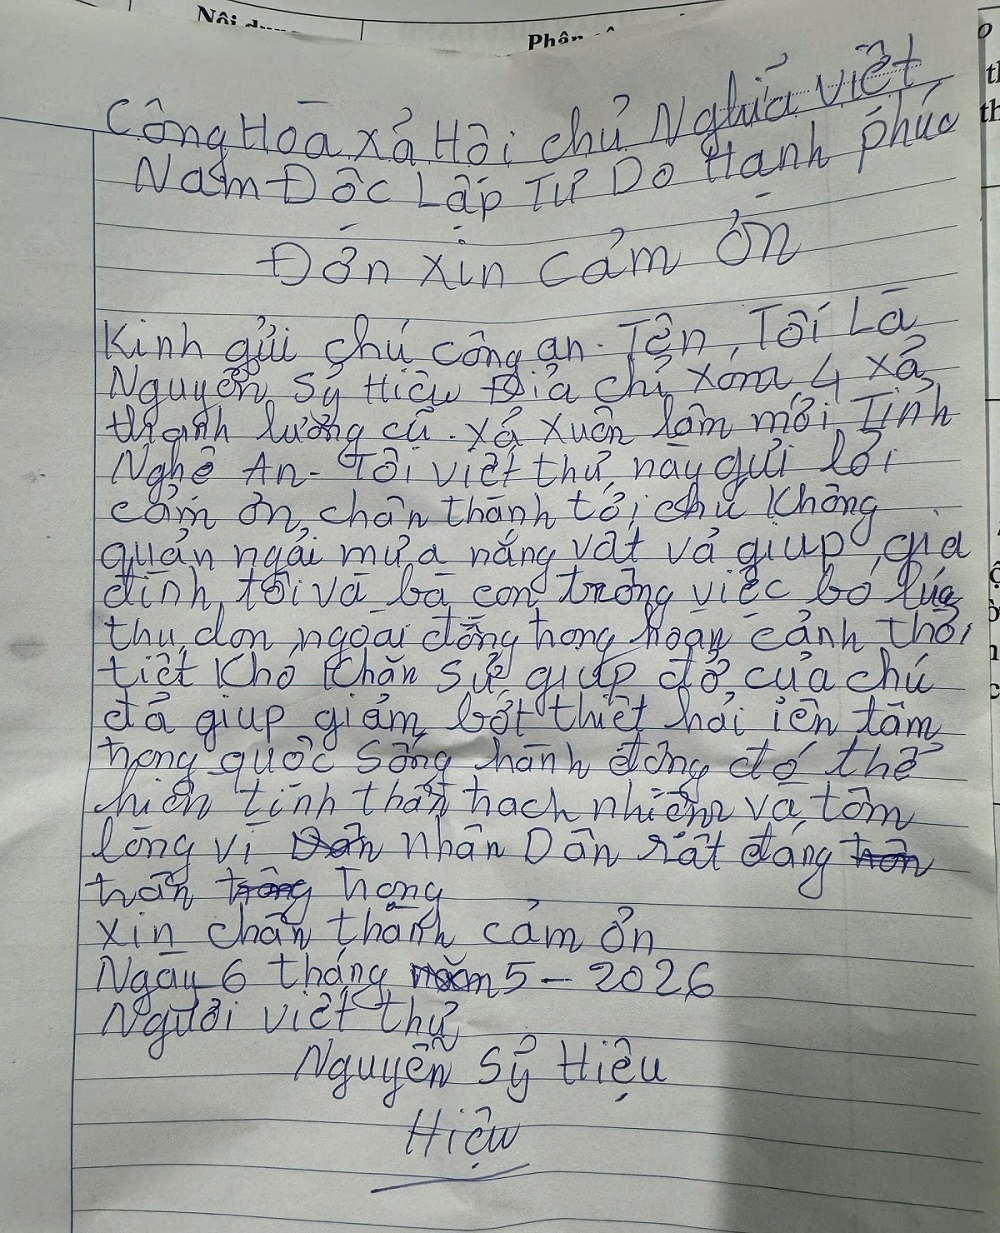 Nội dung
Phân
Công Hòa xả Hội chủ Nghĩa việt
Nam Đôc Lâp Tư Do Hạnh phúc
Đớn xin cảm ỏn
Kinh gửi chú công an. Tên, Tôi Là
Nguyễn Sỹ Hiệu Địa chỉ xóm 4 xả
thanh lương cũ. xả xuân lâm mới Tỉnh
Nghê An - Tôi viết thư này gửi lời
cảm ơn chân thành tới chú không
quản ngải mưa nắng vất vả giup gia
đình tôi và bà con trong việc bó lúa
thu dọn ngoài đồng trong hoàn cảnh thời
tiết khó khăn sự giup đở của chú
đả giup giảm bớt thiệt hải iên tâm
trong quôc sông hành đông đó thể
hiện tinh thần trach nhiệm và tâm
lòng vì nhân Dân rất đáng
trân trọng
xin chân thành cảm ơn
Ngày 6 tháng 5 - 2026
Người viết thư
Nguyễn Sỹ Hiệu
Hiệu